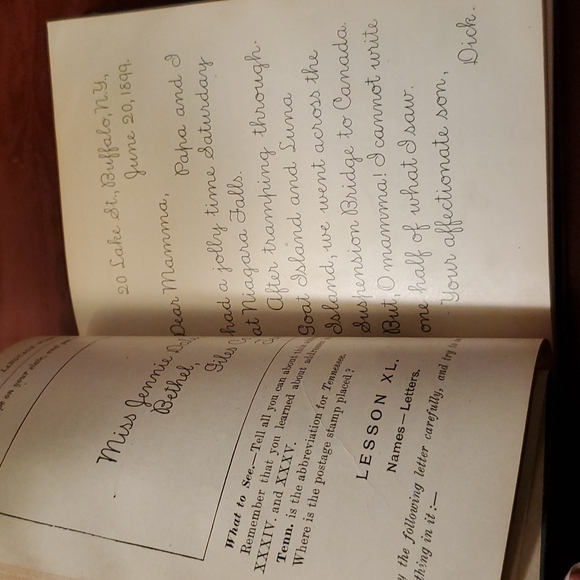 on your slate,
Miss Jennie
Bethel,
Giles
What to See.—Tell all you can about this
Remember that you learned about addresses
XXXIV. and XXXV.
Tenn. is the abbreviation for Tennessee.
Where is the postage stamp placed?
LESSON XL.
Names—Letters.
the following letter carefully, and try to
thing in it:—
20 Lake St., Buffalo, N.Y.,
June 20, 1899.
Dear Mamma,
Papa and I
had a jolly time Saturday
at Niagara Falls.
After tramping through
Goat Island and Luna
Island, we went across the
Suspension Bridge to Canada.
But, O mamma! I cannot write
one half of what I saw.
Your affectionate son,
Dick.